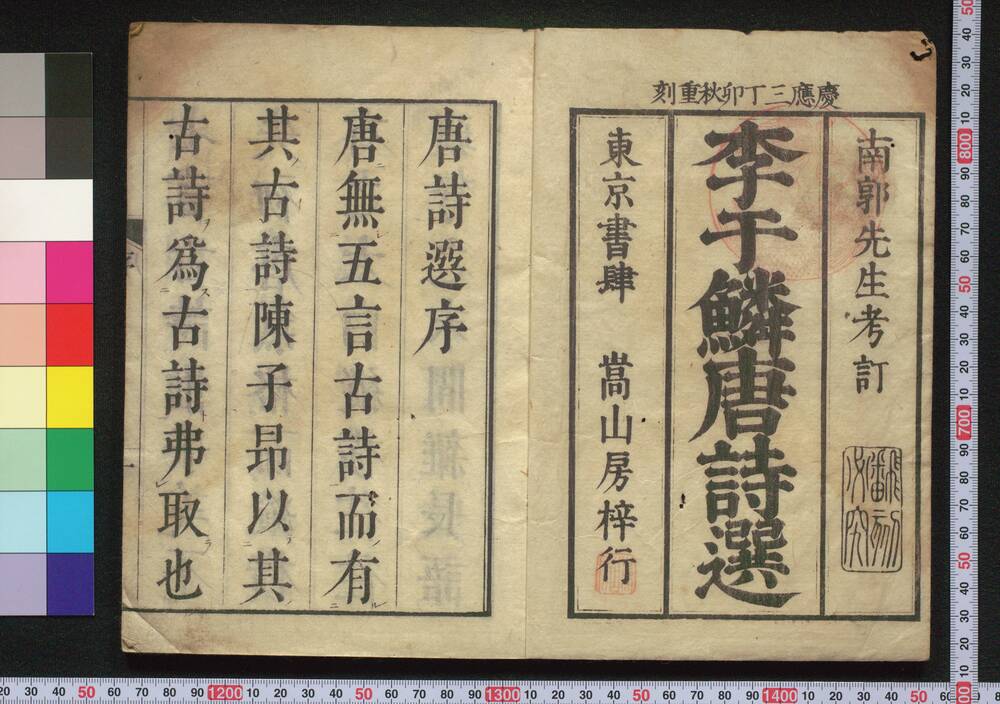 慶應三丁卯秋重刻
南郭先生考訂
李于鱗唐詩選
東京書肆 嵩山房梓行
唐詩選序
唐無五言古詩而有
其古詩陳子昂以其
古詩爲古詩弗取也
序
一